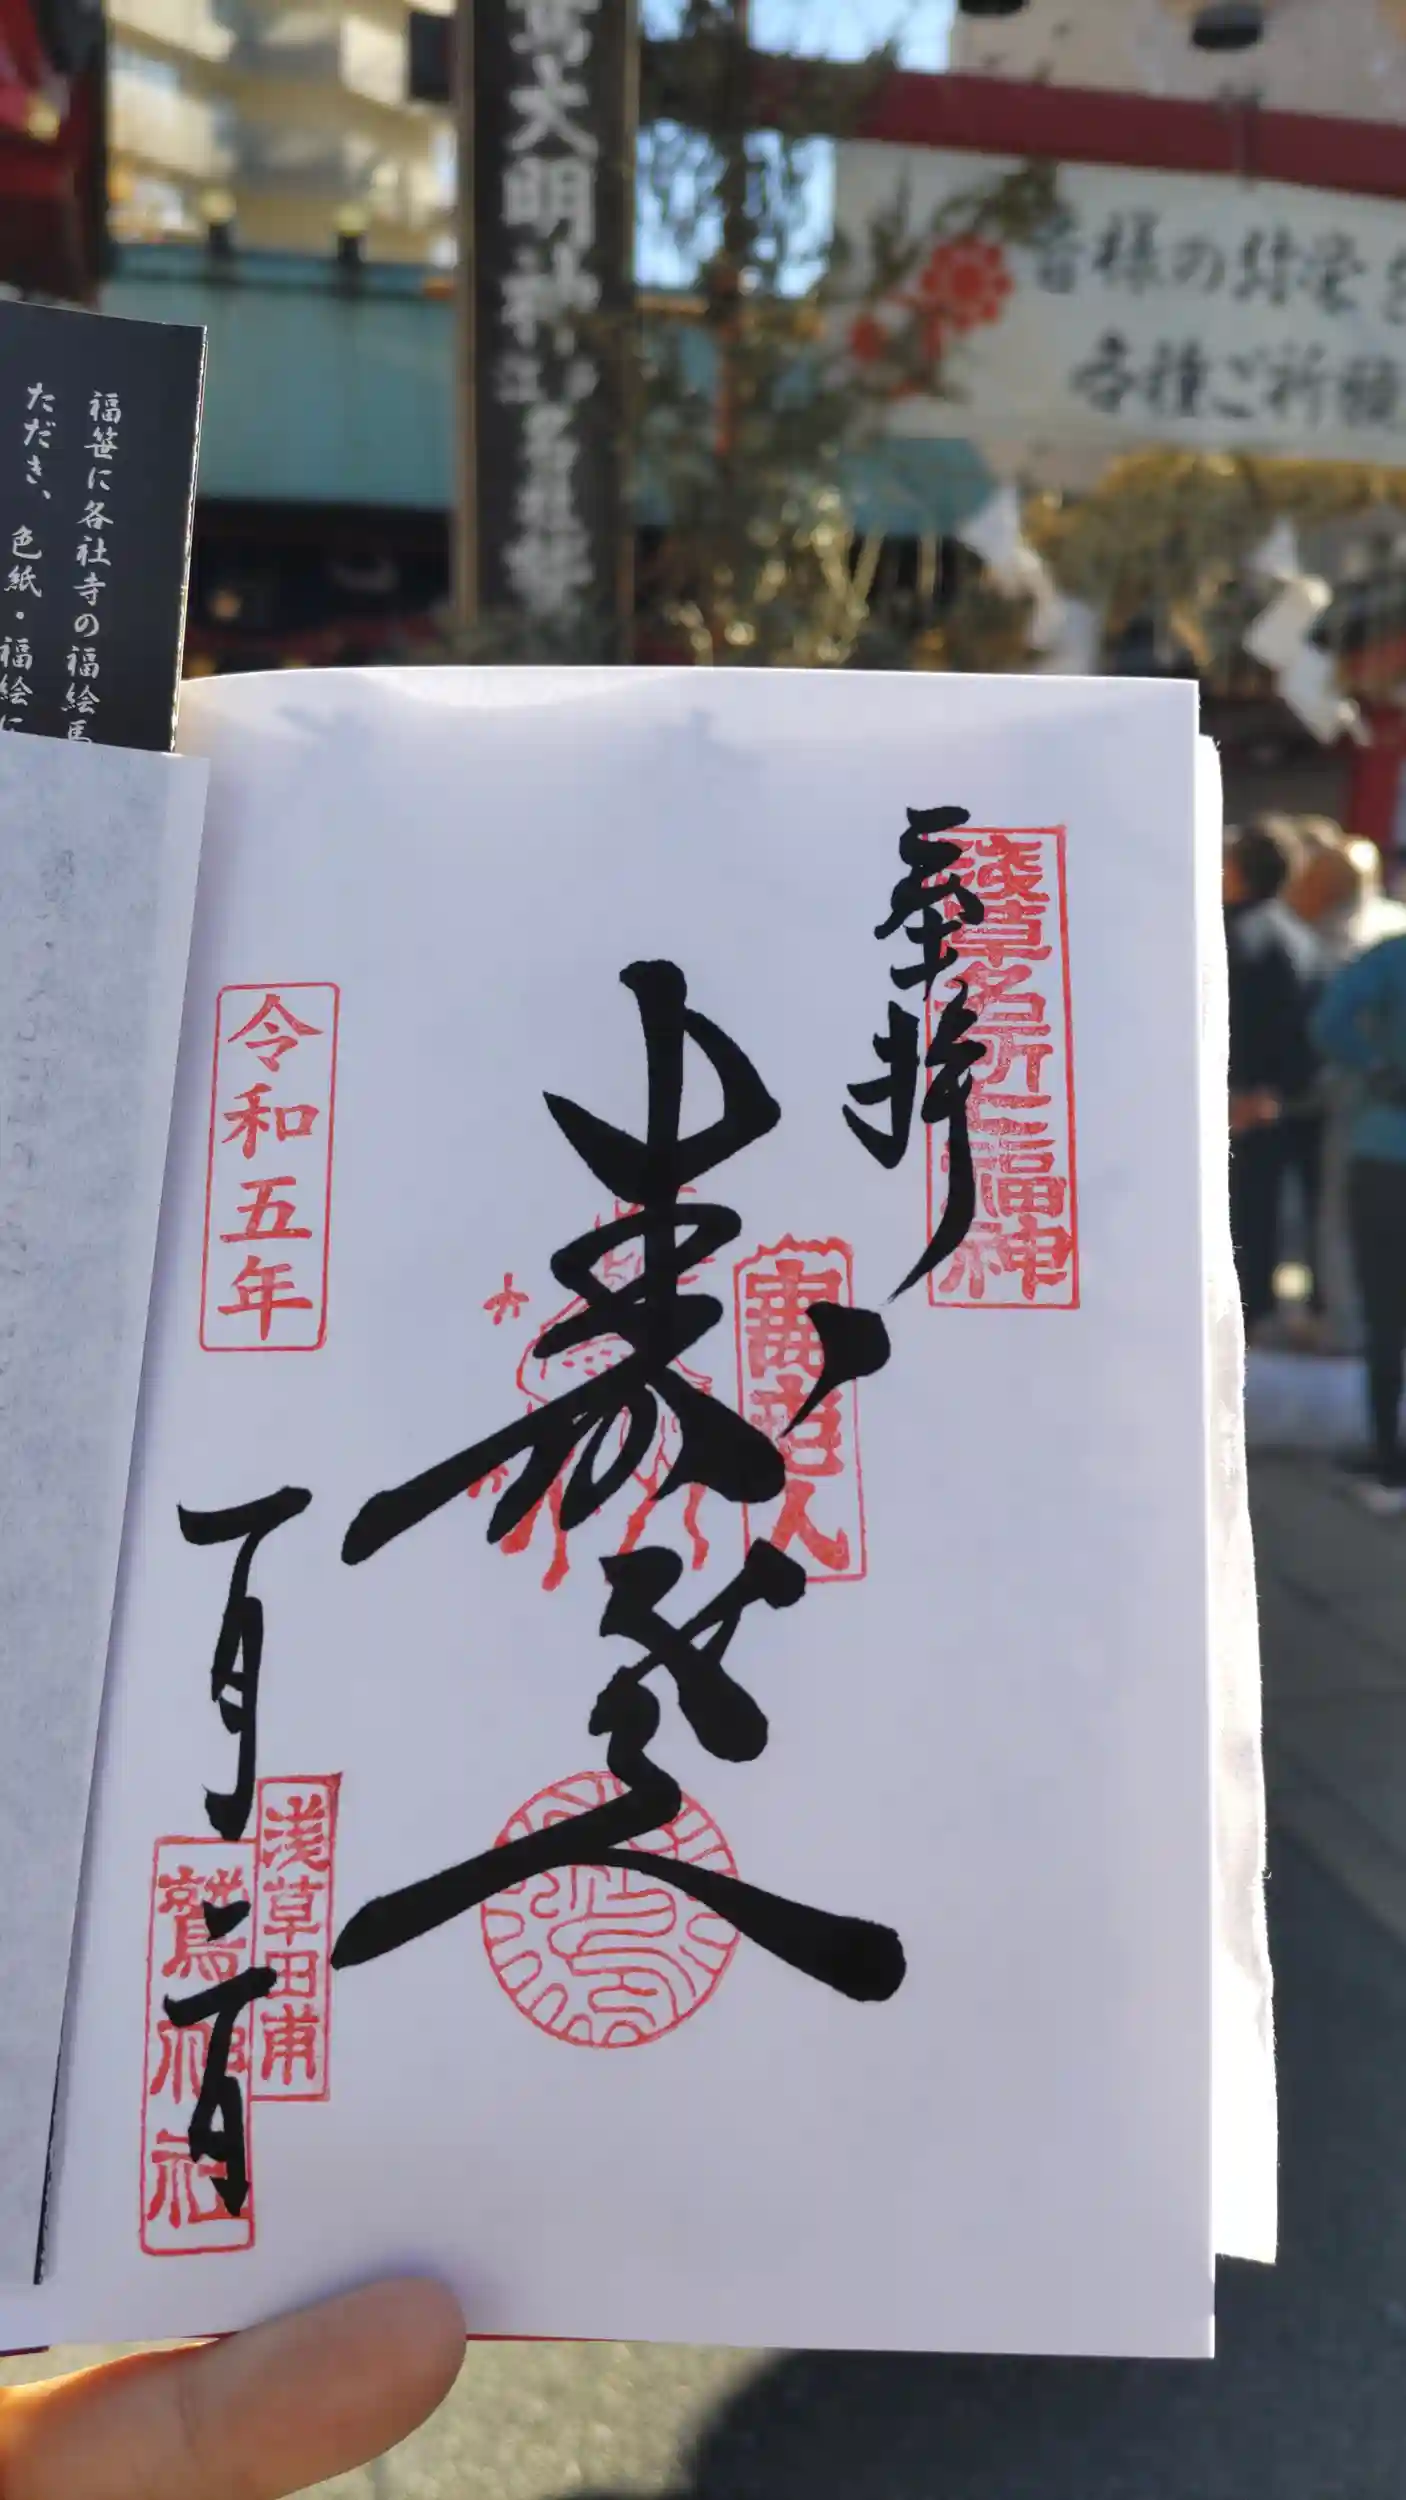 鷲大明神
皆様の
各種ご祈祷
福笹に各社寺の福絵馬
ただき、色紙・福絵に
浅草名所七福神
奉拝
壽老人
寿老人
令和五年
一月二日
浅草田甫
鷲神社